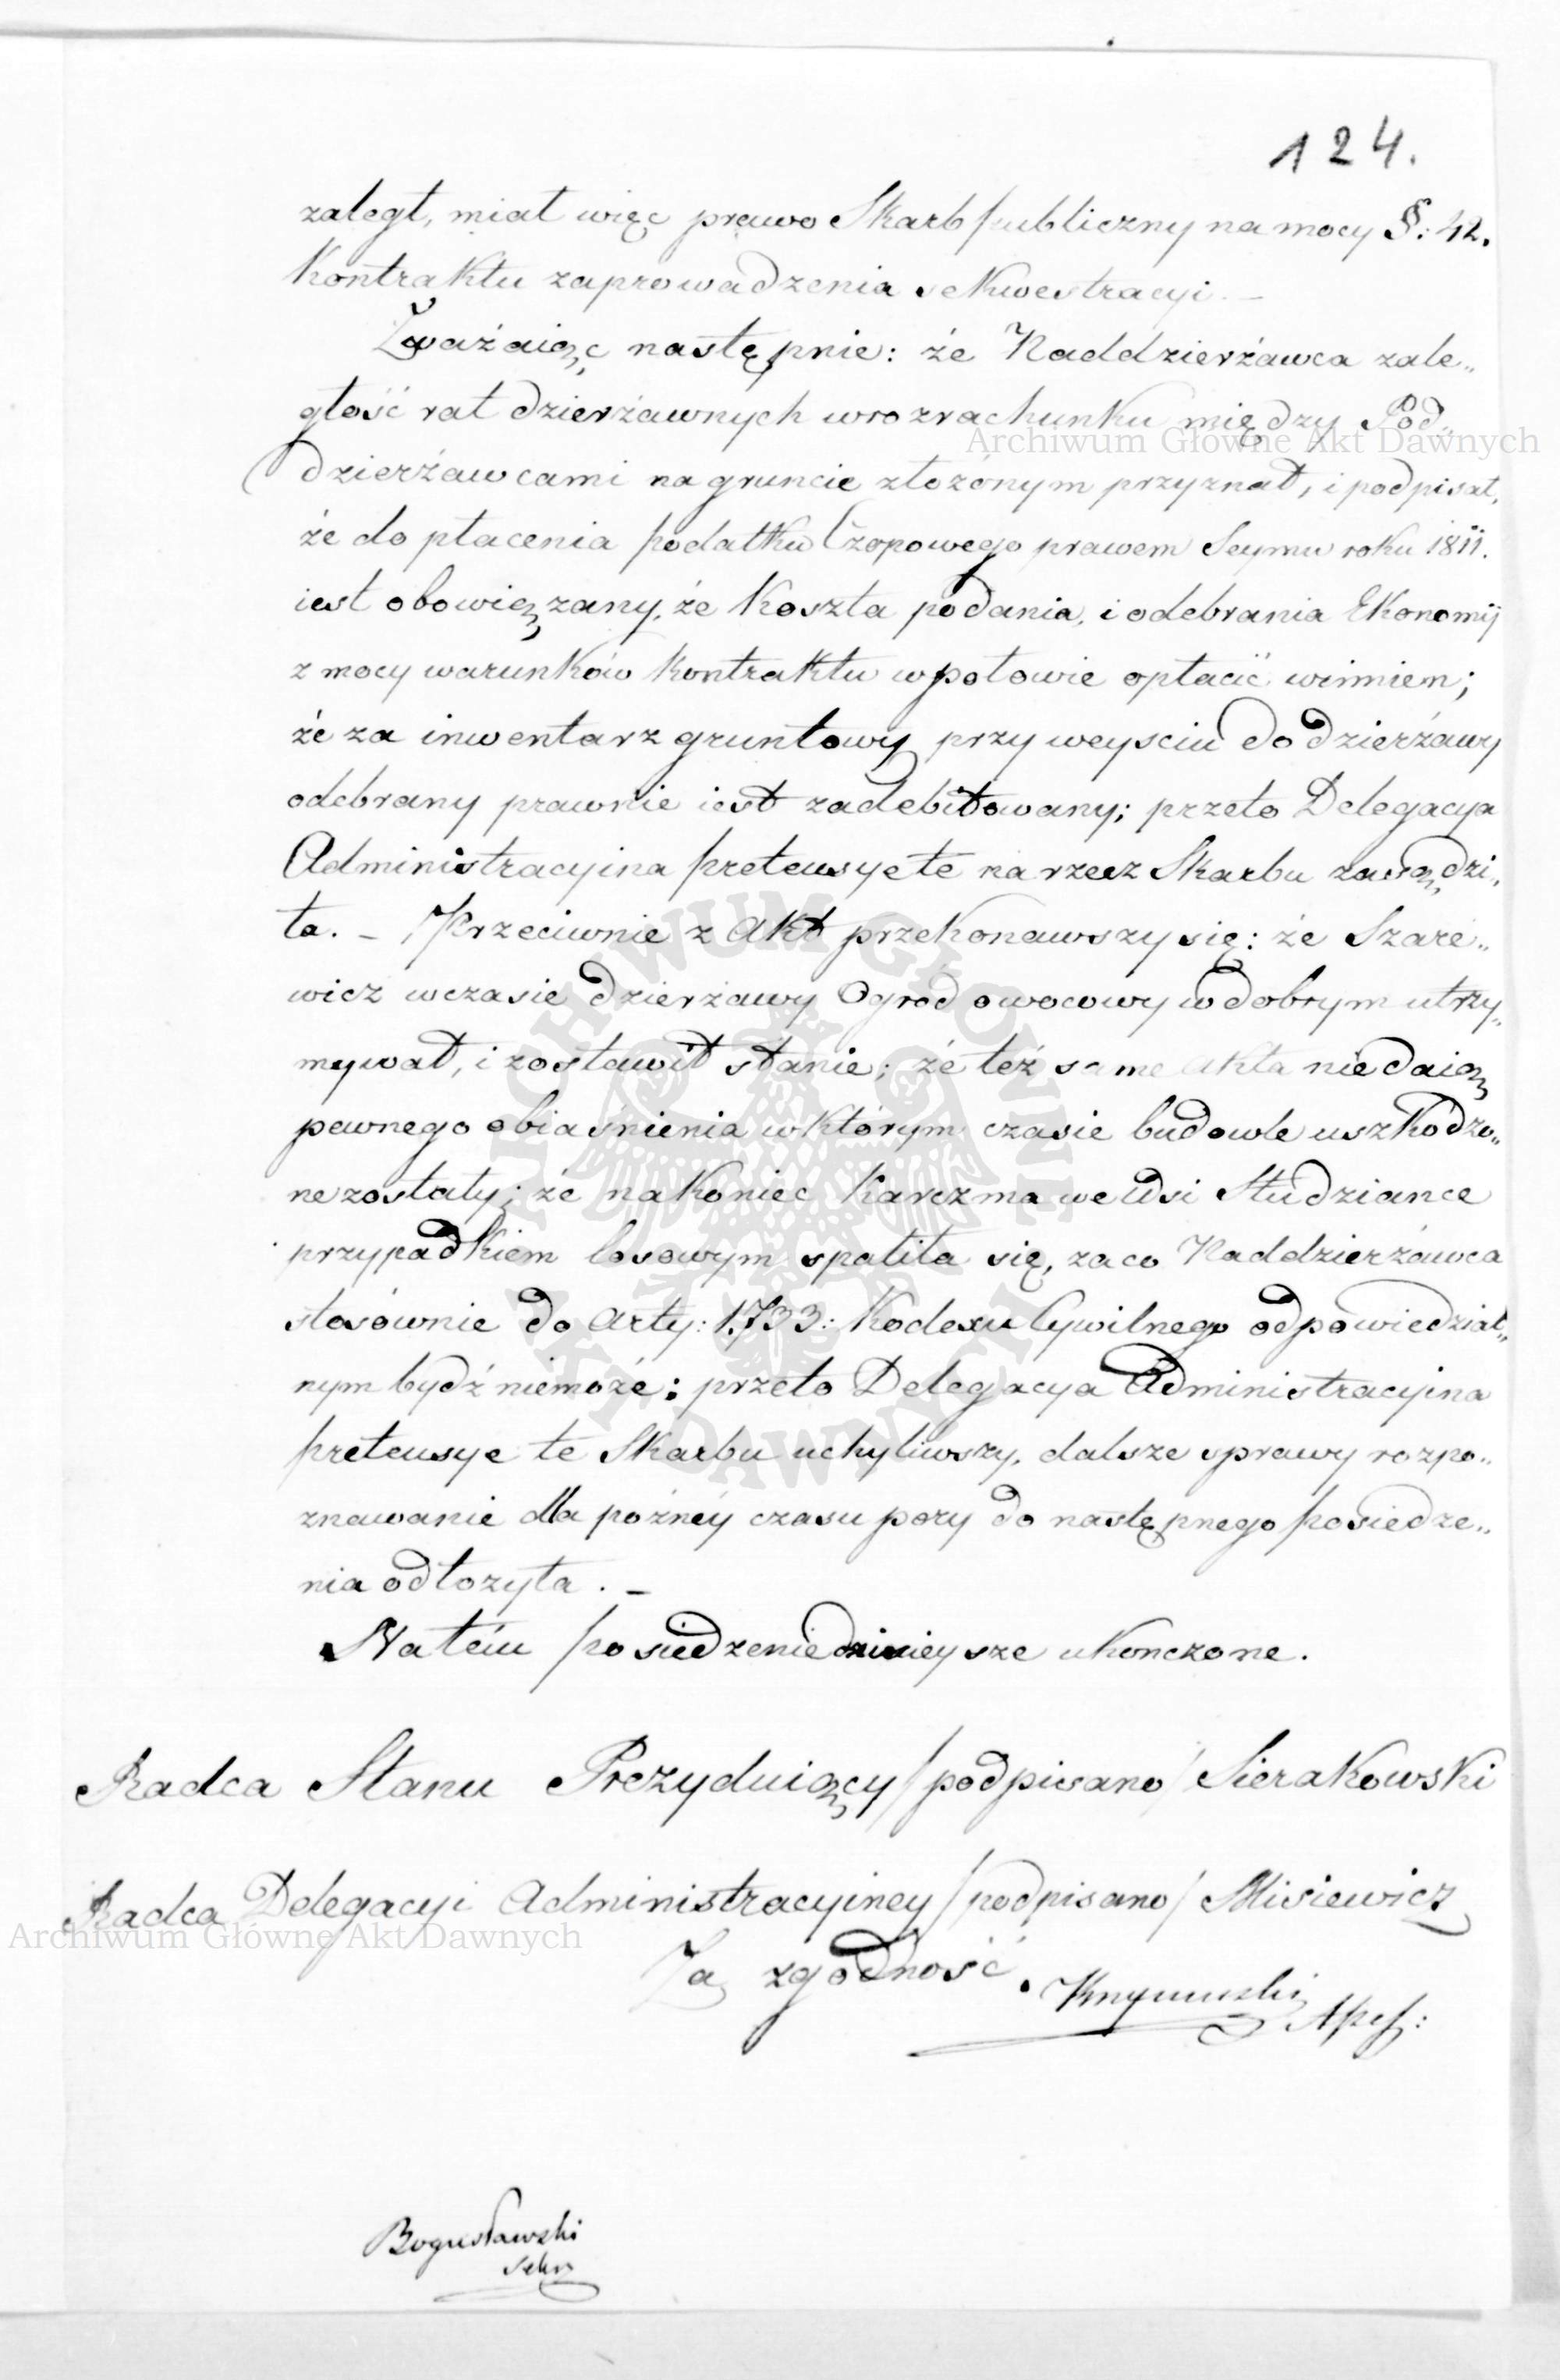 124.
zaległ, miał więc prawo Skarb publiczny na mocy §: 42.
Kontraktu zaprowadzenia sekwestracyi. –
Zważaiąc następnie: że Naddzierżawca zale„
głość rat dzierżawnych w rozrachunku między Pod„
dzierżawcami na gruncie złożonym przyznał, i podpisał,
że do płacenia podatku Czopowego prawem Seymu roku 1811.
iest obowiązany, że Koszta podania, i odebrania Ekonomij
z mocy warunków kontraktu w połowie opłacić winnien;
że za inwentarz gruntowy przy weyściu do dzierżawy
odebrany prawnie iest zadebitowany; przeto Delegacya
Administracyina pretensye te na rzecz Skarbu zasądzi„
ła. – Przeciwnie z Akt przekonawszy się: że Szare„
wicz w czasie dzierżawy Ogród owocowy w dobrym utrzy„
mywał, i zostawił stanie; że też same akta nie daią
pewnego obiaśnienia w którym czasie budowle uszkodzo„
ne zostały; że nakoniec Karczma we Wsi Studziance
przypadkiem losowym spaliła się, za co Naddzierżawca
stosownie do Arty: 1733: Kodexu Cywilnego odpowiedzial„
nym bydź niemoże; przeto Delegacya Administracyina
pretensye te Skarbu uchyliwszy, dalsze sprawy rozpo„
znawanie dla poźnéy czasu pory do następnego posiedze„
nia odłożyła. –
Na tém posiedzenie dzisieysze ukończone.
Radca Stanu Prezyduiący /podpisano/ Sierakowski
Radca Delegacyi Administracyiney /podpisano/ Misiewicz
Za zgodność
Bogusławski
Sekr
Archiwum Główne Akt Dawnych
Archiwum Główne Akt Dawnych
ARCHIWUM GŁÓWNE AKT DAWNYCH